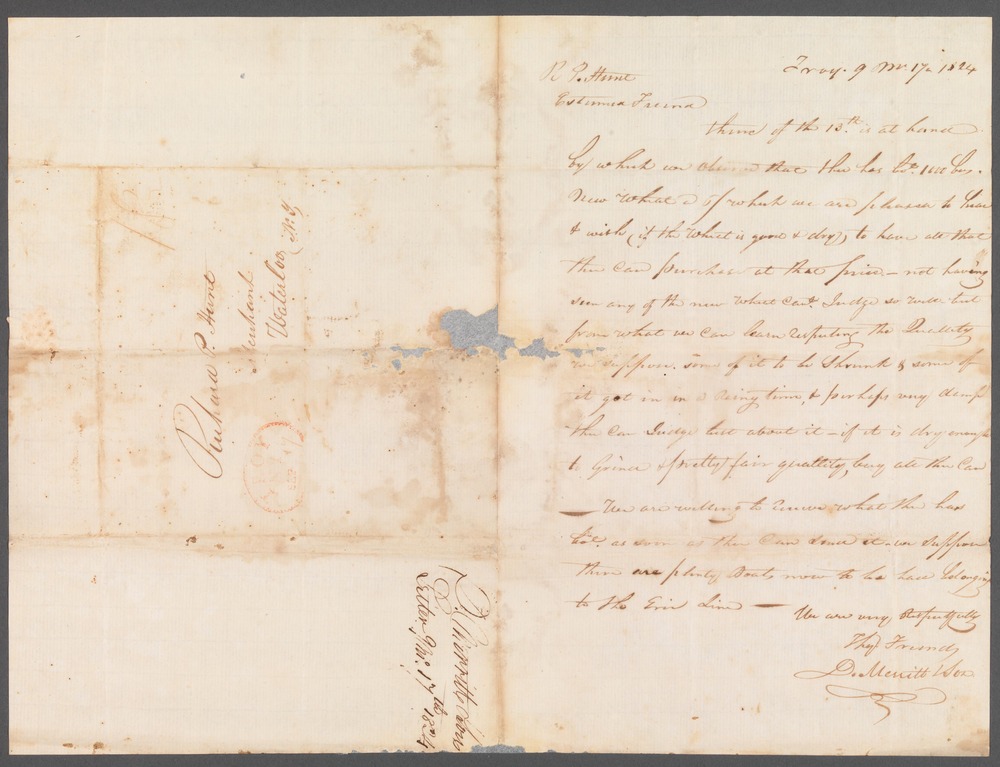 Troy. 9 Mo. 17. 1824
R P. Hunt
Esteemed Friend
thine of the 13th is at hand
by which we observe that thee has bot. 1600 bus.
New Wheat of which we are pleased to hear
& wish (if the Wheat is good & dry) to have all that
thee can purchase at that price - not having
seen any of the new Wheat cant. Judge so well but
from what we can learn respecting the Quallity
we suppose some of it to be Shrunk & some of
it got in in a rainy time, & perhaps very damp
thee can Judge best about it - if it is dry enough
to Grind & pretty fair quallity, buy all thee can
- We are willing to receive what thee has
bot. as soon as thee can send it. we suppose
there are plenty Boats now to be had belonging
to the Erie Line -
We are very Respectfully
Thy Friends
D. Merritt & Son
Richard P. Hunt
Merchant
Waterloo N. Y
TROY
D. Merritt & Son
Letter 9 Mo. 17th 1824